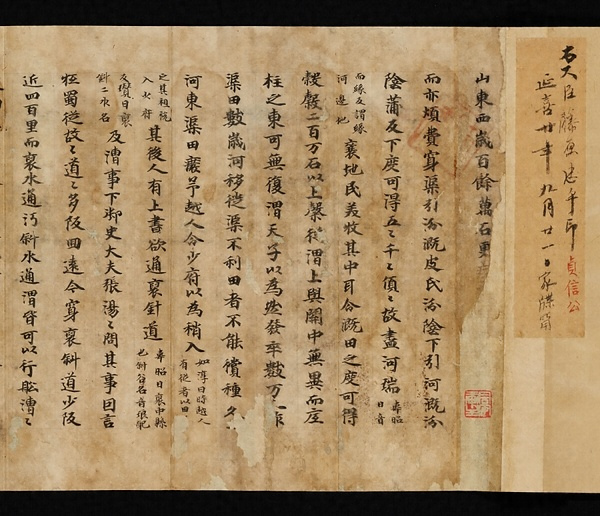 右大臣藤原忠平印 貞信公
延喜廿年九月廿一日家牒
山東西歲百餘萬石更
而亦煩費穿渠引汾溉皮氏汾陰下引河溉汾
陰蒲反下度可得五々千々頃々故盡河瑞 韋昭曰音
而緣反謂緣河邊地 襄地民茭牧其中耳今溉田之度可得
穀穀二百万石以上從渭上與關中無異而庢
柱之東可無復渭天子以為然發卒數万人作
渠田數歲河移徙渠不利田者不能償種
河東渠田廢予越人令少府以為稍入 如淳曰時越人有徙者以田
之其租稅入少府 其後人有上書欲通襄針道 韋昭曰襄中縣也斜谷名音
斜二水名 及漕事下御史大夫張湯々問其事因言
蜀從故々道々多阪回遠今穿襄斜道少阪
近四百里而襄水通沔斜水通渭皆可以行舩漕々